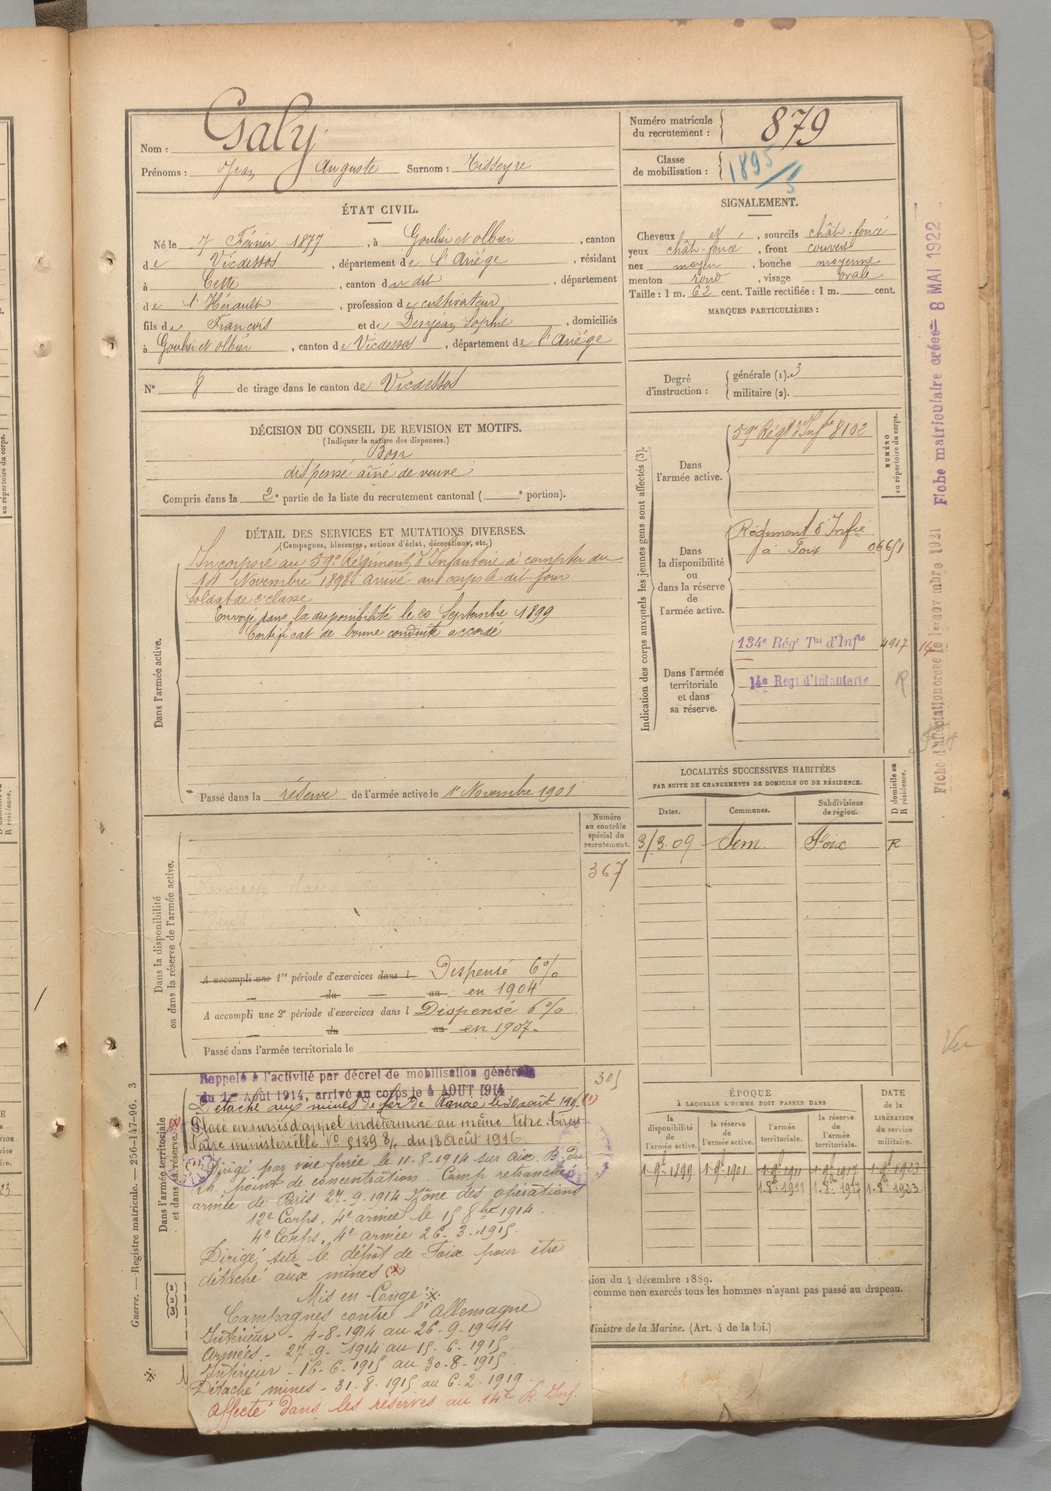 Nom : Galy
Prénoms : Jean Auguste Surnom : Tisseyre
Numéro matricule du recrutement : 879
Classe de mobilisation : 1895
ÉTAT CIVIL.
Né le 7 Février 1877, à Goulier et Olbier, canton
de Vicdessos, département de l'Ariège, résidant
à Cette, canton du dit, département
de l'Hérault, profession de cultivateur
fils de François et de Sophie, domiciliés
à Goulier et Olbier, canton de Vicdessos, département de l'Ariège
N° 8 de tirage dans le canton de Vicdessos
SIGNALEMENT.
Cheveux et, sourcils chât. foncé
yeux chât. foncé, front couvert
nez moyen, bouche moyenne
menton rond, visage ovale
Taille : 1 m. 62 cent. Taille rectifiée : 1 m. cent.
MARQUES PARTICULIÈRES :
Degré d'instruction : générale (1). 3
militaire (2).
DÉCISION DU CONSEIL DE REVISION ET MOTIFS.
(Indiquer la nature des dispenses.)
Bon
dispensé aîné de veuve
Compris dans la 2e partie de la liste du recrutement cantonal ( e portion).
DÉTAIL DES SERVICES ET MUTATIONS DIVERSES.
(Campagnes, blessures, actions d'éclat, décorations, etc.)
Dans l'armée active.
Incorporé au 59e Régiment d'Infanterie à compter du
14 Novembre 1898 arrivé au corps le dit jour
soldat de 2e classe
Envoyé dans la disponibilité le 20 Septembre 1899
Certificat de bonne conduite accordé
Passé dans la réserve de l'armée active le 1er Novembre 1901
Indication des corps auxquels les jeunes gens sont affectés (3).
NUMÉRO au répertoire du corps.
Dans l'armée active.
59e Régt d'Infie 8102
Dans la disponibilité ou dans la réserve de l'armée active.
Régiment d'Infie
à Foix 06651
Dans l'armée territoriale et dans sa réserve.
134e Rég' T'al d'Inf'ie 4917
14e Régt d'Infanterie
R
Fiche matriculaire créée 8 MAI 1922
LOCALITÉS SUCCESSIVES HABITÉES
PAR SUITE DE CHANGEMENTS DE DOMICILE OU DE RÉSIDENCE.
D domicile ou R résidence.
Dates. Communes. Subdivisions de région.
3/3.09 Sem Foix R
Dans la disponibilité ou dans la réserve de l'armée active.
Numéro au contrôle spécial du recrutement.
367
A accompli une 1re période d'exercices dans l Dispensé 6%
du au en 1904
A accompli une 2e période d'exercices dans l Dispensé 6%
du au en 1907
Passé dans l'armée territoriale le
Dans l'armée territoriale et dans sa réserve.
301
Rappelé à l'activité par décret de mobilisation générale
du 1er Août 1914, arrivé au corps le 4 AOUT 1914
Détaché aux mines de fer de Rancié le 30 août 191
Placé en sursis d'appel indéterminé au même titre. Circu-
laire ministérielle N° 5139 8/4 du 18 Août 1916
Dirigé par voie ferrée le 11-8-1914 sur Aix B. du
point de concentration Camp retranché
armée de Paris 27-9-1914 Zone des opérations
12e Corps, 4e armée le 15 8bre 1914.
4e Corps, 4e armée 26-3-1915.
Dirigé sur le dépôt de Foix pour être
détaché aux mines (x)
Mis en Congé x
Campagnes contre l'Allemagne
Intérieur - 4-8-1914 au 26-9-1914
Armées - 27-9-1914 au 15-6-1915
Intérieur - 16-6-1915 au 30-8-1915
Détaché mines - 31-8-1915 au 6-2-1919
Affecté dans les réserves au 14e R. Inf.
ÉPOQUE
À LAQUELLE L'HOMME DOIT PASSER DANS
DATE de la LIBÉRATION du service militaire.
la disponibilité de l'armée active. la réserve de l'armée active. l'armée territoriale. la réserve de l'armée territoriale.
1-9bre 1899 1-9bre 1901 1-9bre 1911 1-9bre 1917 1-9bre 1923
1-8bre 1911 1-8bre 1917 1-8bre 1923
sion du 4 décembre 1889.
comme non exercés tous les hommes n'ayant pas passé au drapeau.
Ministre de la Marine. (Art. 4 de la loi.)
Guerre. — Registre matricule. — 256-147-96. 3